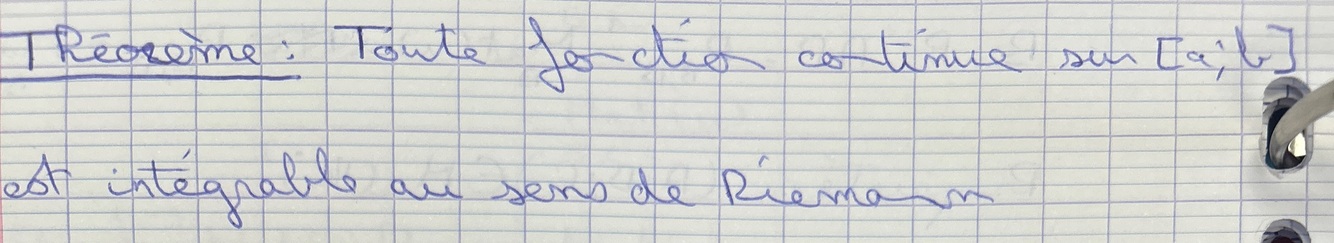 Théorème : Toute fonction continue sur [a;b]
est intégrable au sens de Riemann